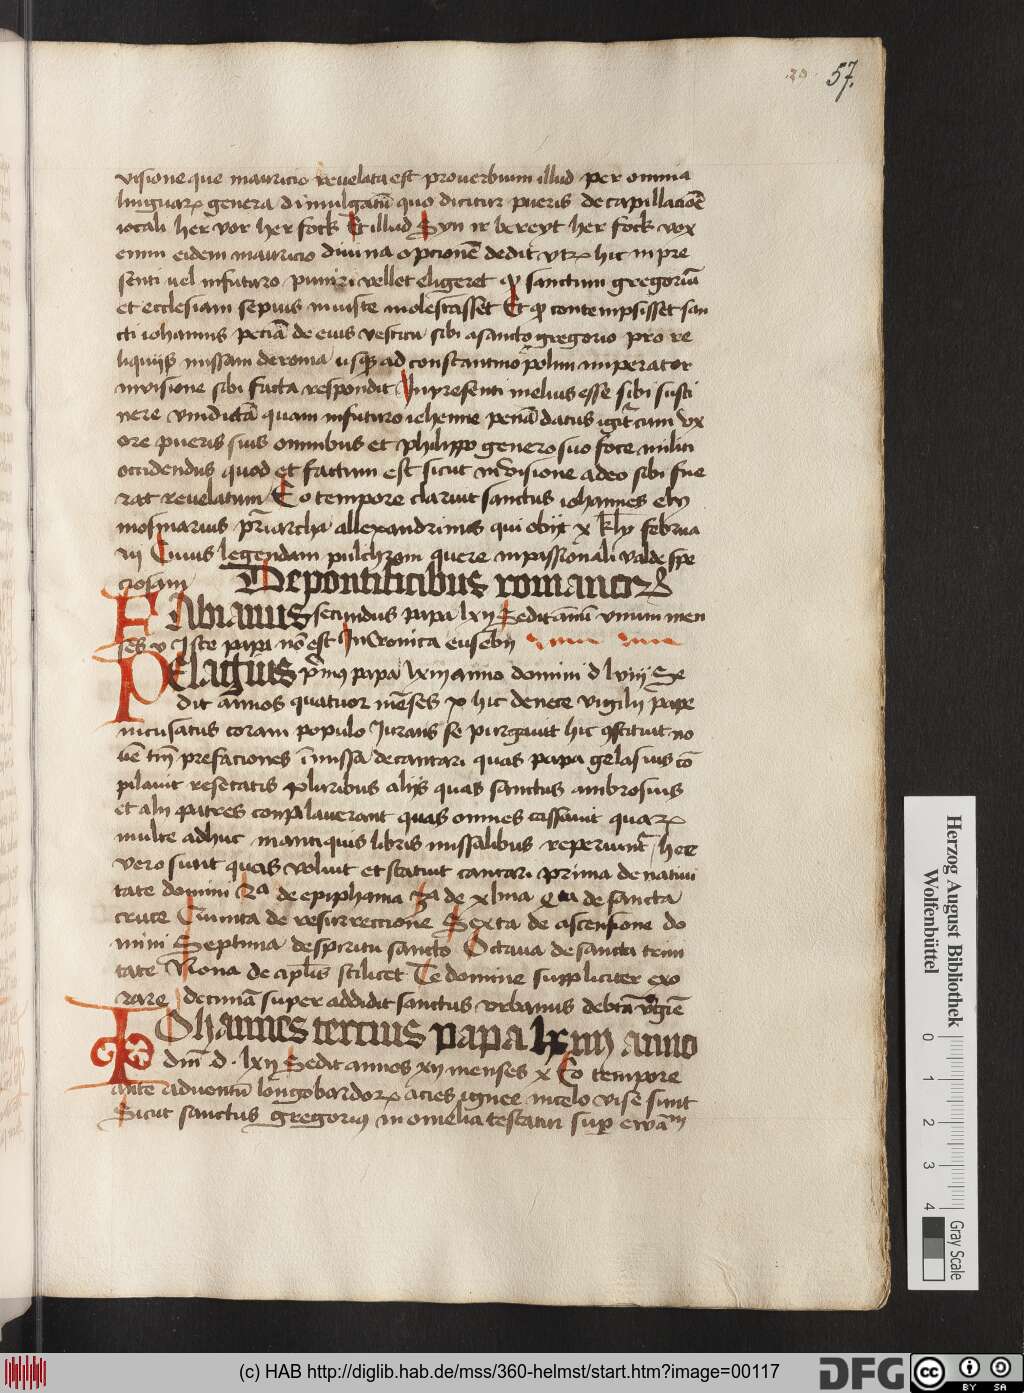 20 57.
visione que mauricio reuelata est prouerbium illud per omnia
linguarꝝ genera diuulgatū quo dicitur pueris de capillacionē
iocali her vor her fock Et illud Syn ir bereyt her fock vox
enim eidem mauricio diuina opcionē dedit vtꝝ hic in pre
senti uel infuturo puniri vellet eligeret ꝙ sanctum gregoriū
et ecclesiam sepius iniuste molestasset Et ꝙ contempsisset san
cti iohannis peciā de eius vestitu sibi a sancto gregorio pro re
liquijs missam de roma usqꝫ ad constantinopolim imperator
in visione sibi facta respondit In presenti melius esse sibi susti
nere vindictā quam infuturo iehenne penā datus igit̄ cum vx
ore pueris suis omnibus et philippo genero suo foce militi
occidendus quod et factum est sicut in visione adeo sibi fue
rat reuelatum Eo tempore claruit sanctus iohannes ely
mosinarius pr̄iarcha allexandrinus qui obijt x kl̄ februa
rij Cuius legendam pulchram quere in passionali valde spe
ciosam De pontificibus romanorꝝ
FAbianus secundus papa lxij Sedit annū vnum men
ses v Iste papa nō est In Cronica eusebij
PElagius p̄mus papa lxiij anno domini d lviij Se
dit annos quatuor mēses x hic de nece vigilij pape
incusatus coram populo Iurans se purgauit hic ꝯstituit no
uē tm̄ prefaciones ī missa decantari quas papa gelasius cō
pilauit resecatis pluribus alijs quas sanctus ambrosius
et alij patres compilauerant quas omnes cassauit quarꝝ
multe adhuc in antiquis libris missalibus reperiunt̄ hee
vero sunt quas voluit et statuit cantari prima de natiui
tate domini 2a de epiphania 3a de xlma qta de sancta
cruce Quinta de resurrectione Sexta de ascensione do
mini Septima de spiritu sancto Octaua de sancta trini
tate Nona de ap̄lis scilicet Te domine suppliciter exo
rare decimā super addidit sanctus vrbanus de btā v̄gīe
IOhannes tercius papa lxiiij anno
dnī d lxij Sedit annos xij menses x Eo tempore
ante aduentū longobardorꝝ acies ignee in celo vise sunt
Sicut sanctus gregorius in omelia testatur sup̄ ewām
Herzog August Bibliothek
Wolfenbüttel
0 1 2 3 4
Gray Scale
(c) HAB http://diglib.hab.de/mss/360-helmst/start.htm?image=00117
DFG
cc BY SA